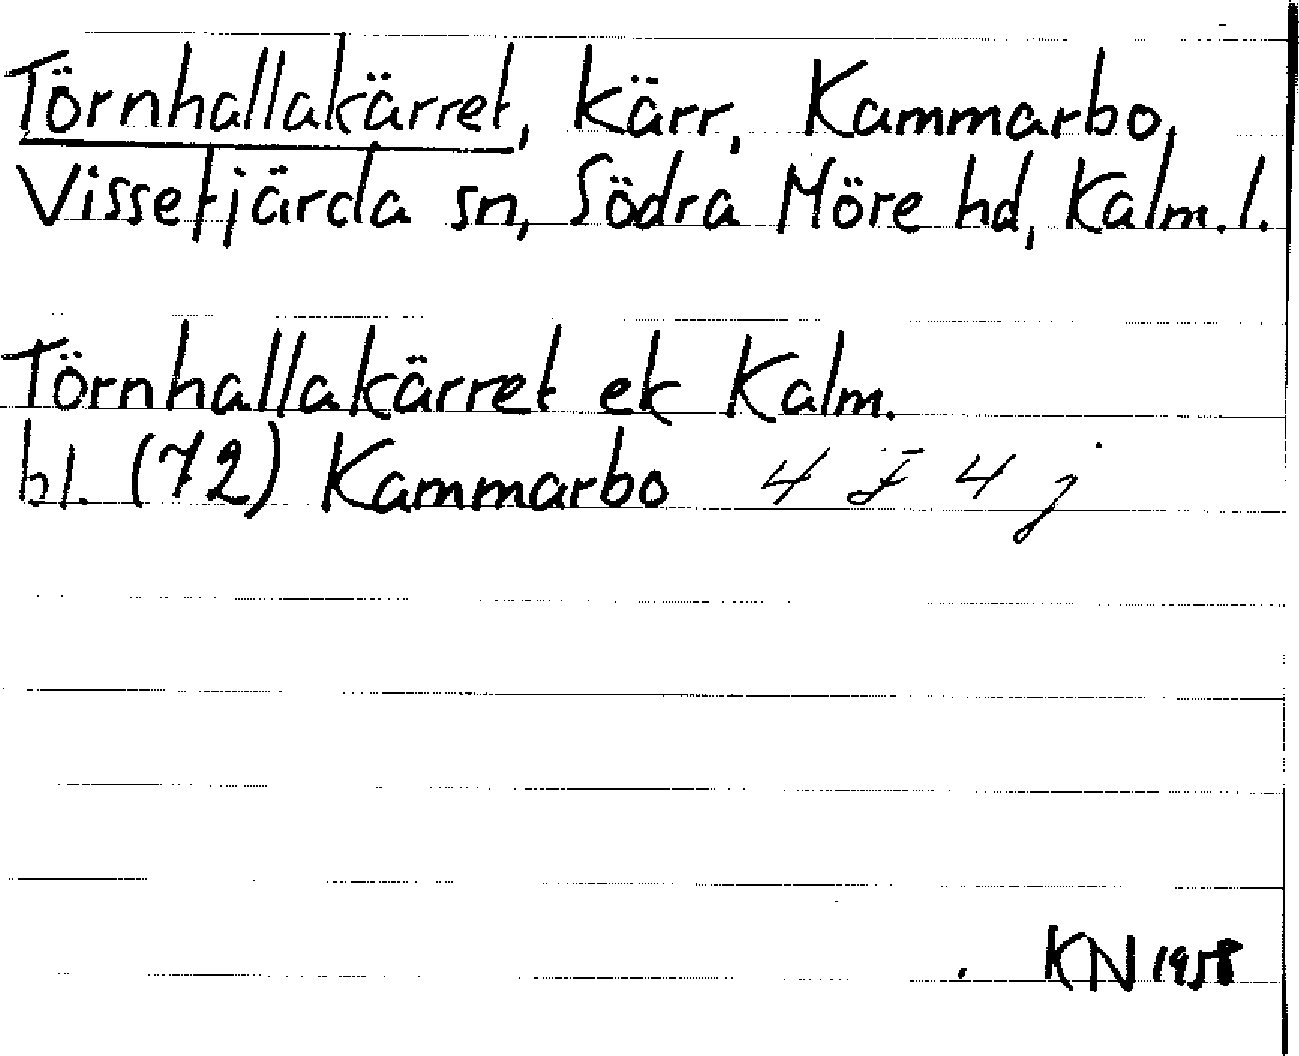 Törnhallakärret, kärr, Kammarbo,
Vissefjärda sn, Södra Möre hd, Kalm. l.
Törnhallakärret ek Kalm.
bl. (72) Kammarbo 4 F 4 j
KN 1958